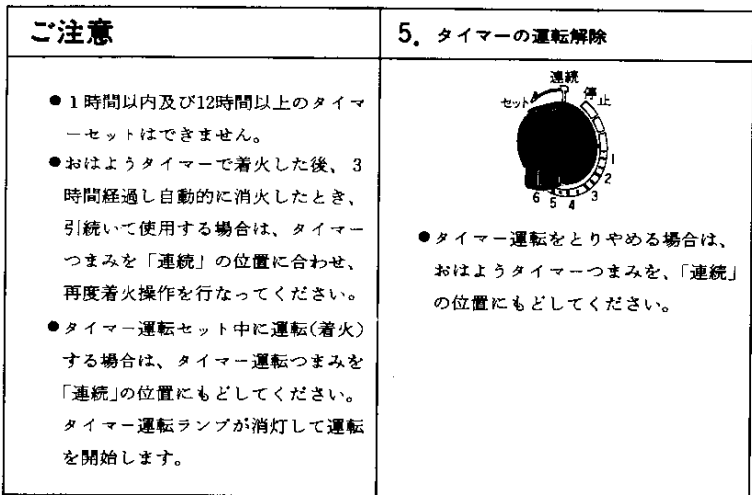 ご注意
●1時間以内及び12時間以上のタイマ
ーセットはできません。
●おはようタイマーで着火した後、3
時間経過し自動的に消火したとき、
引続いて使用する場合は、タイマー
つまみを「連続」の位置に合わせ、
再度着火操作を行なってください。
●タイマー運転セット中に運転(着火)
する場合は、タイマー運転つまみを
「連続」の位置にもどしてください。
タイマー運転ランプが消灯して運転
を開始します。
5. タイマーの運転解除
連続
セット
停止
1
2
3
4
5
6
●タイマー運転をとりやめる場合は、
おはようタイマーつまみを、「連続」
の位置にもどしてください。